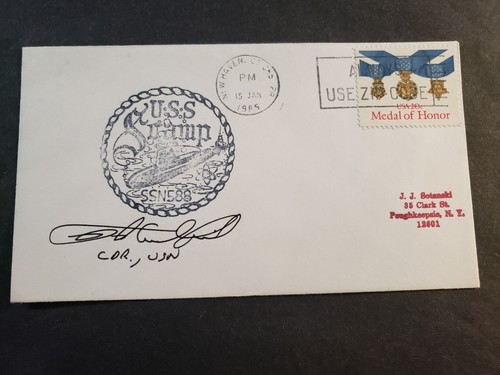 U.S.S
Scamp
SSN588
NEW HAVEN, CT
PM
15 JAN
1985
USE ZIP CODE
USA 20c
Medal of Honor
J. J. Sotanski
35 Clark St.
Poughkeepsie, N. Y.
12601
CDR., USN